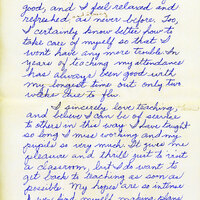 good, and I feel relaxed and
refreshed as never before. Too,
I certainly know better how to
take care of myself so that I
won't have any more trouble. In
years of teaching my attendance
has always been good with
my longest time out only two
weeks due to flu.
I sincerely love teaching,
and believe I can be of service
to others in this way. I have taught
so long I miss working and my
pupils so very much. It gives me
pleasure and thrill just to visit
a classroom, but I do want to
get back to teaching as soon as
possible. My hopes are so intense
I find myself making plans